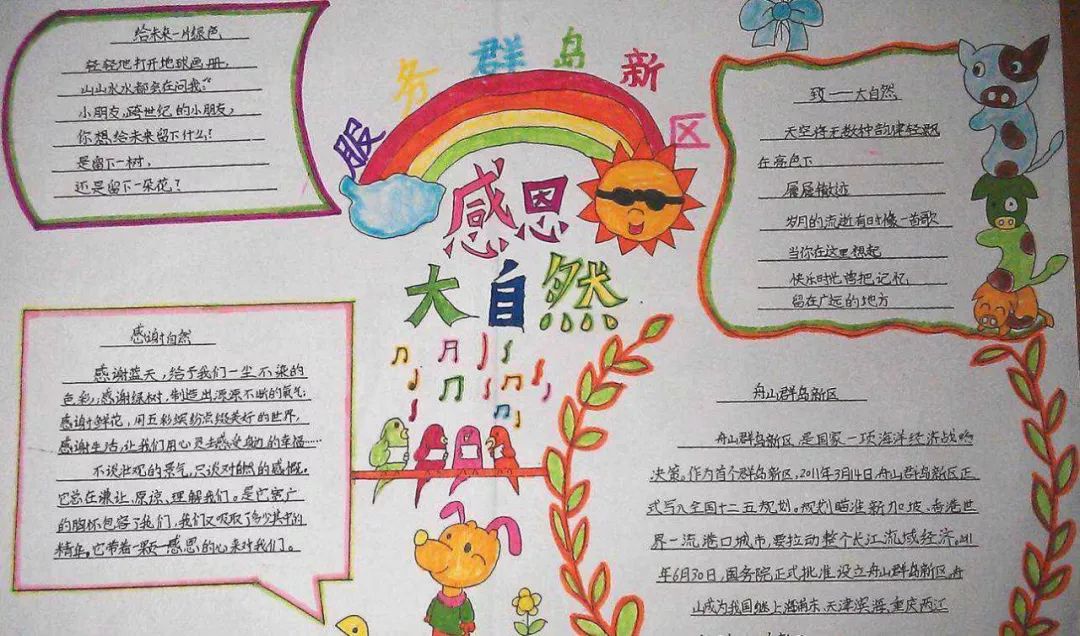 服务群岛新区
感恩
大自然
给未来一片绿色
轻轻地打开地球画册,
山山水水都会在问我:"
小朋友,跨世纪的小朋友,
你想给未来留下什么!
是留下一树,
还是留下一朵花?
致——大自然
天空将无数种韵律轻敲
在亮色下
层层撒迹
岁月的流逝有时像一首歌
当你在这里想起
快乐时光曾把记忆
留在广远的地方
感谢自然
感谢蓝天,给予我们一尘不染的
色彩,感谢绿树,制造出源源不断的氧气;
感谢鲜花,用五彩缤纷点缀美好的世界,
感谢生活,让我们用心灵去感受身边的幸福……
不谈壮观的景气,只谈对自然的感慨。
它总在谦让、原谅、理解我们。是它宽广
的胸怀包容了我们,我们又吸取了多少其中的
精华。它带着一颗感恩的心来对我们。
舟山群岛新区
舟山群岛新区,是国家一项海洋经济战略
决策。作为首个群岛新区,2011年3月14日,舟山群岛新区正
式写入全国十二五规划。规划瞄准新加坡、香港世
界一流港口城市,要拉动整个长江流域经济。2011
年6月30日,国务院正式批准设立舟山群岛新区,舟
山成为我国继上海浦东、天津滨海、重庆两江